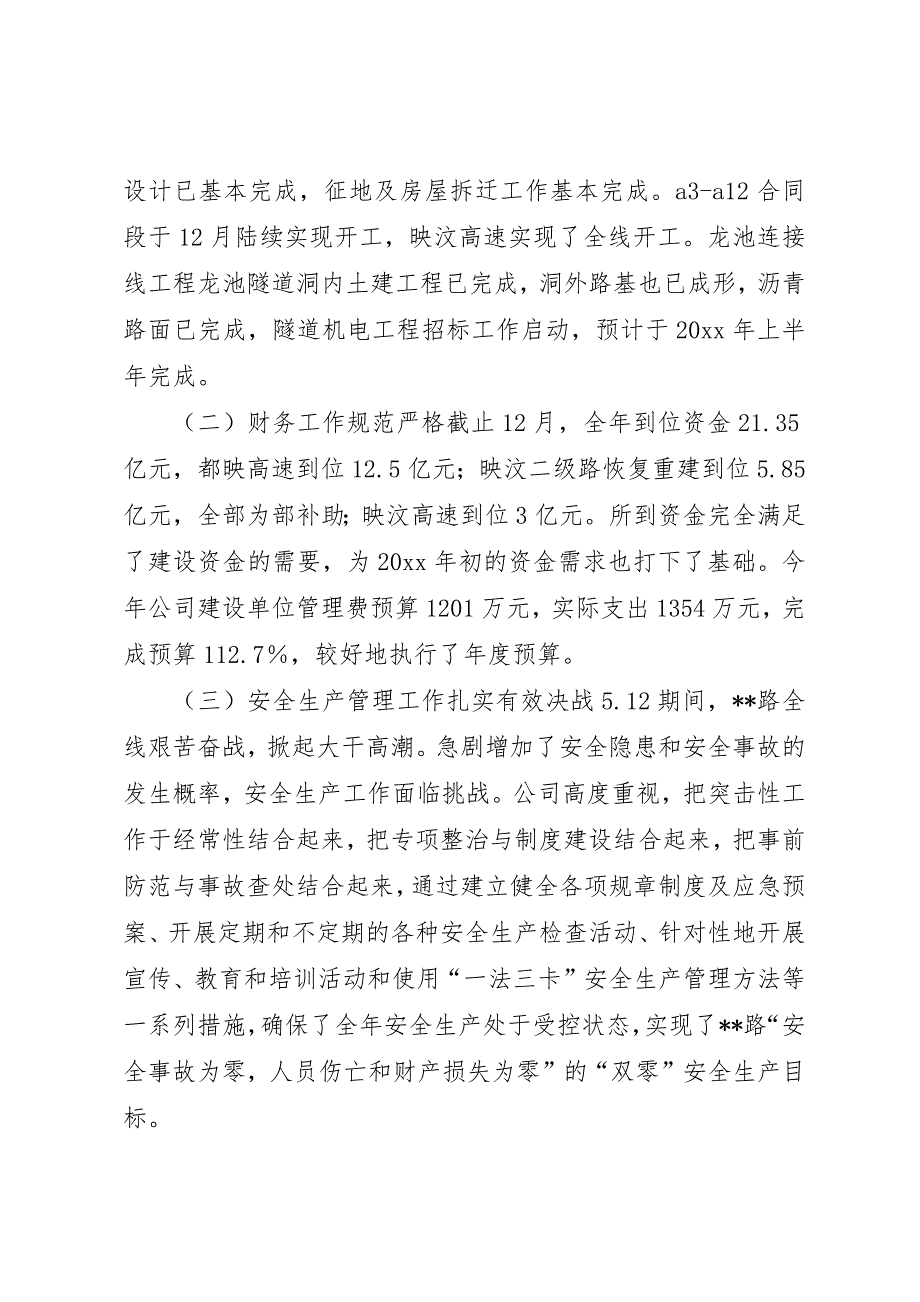 设计已基本完成，征地及房屋拆迁工作基本完成。a3-a12 合同
段于 12 月陆续实现开工，映汶高速实现了全线开工。龙池连接
线工程龙池隧道洞内土建工程已完成，洞外路基也已成形，沥青
路面已完成，隧道机电工程招标工作启动，预计于 20xx 年上半
年完成。
（二）财务工作规范严格截止 12 月，全年到位资金 21.35
亿元，都映高速到位 12.5 亿元；映汶二级路恢复重建到位 5.85
亿元，全部为部补助；映汶高速到位 3 亿元。所到资金完全满足
了建设资金的需要，为 20xx 年初的资金需求也打下了基础。今
年公司建设单位管理费预算 1201 万元，实际支出 1354 万元，完
成预算 112.7％，较好地执行了年度预算。
（三）安全生产管理工作扎实有效决战 5.12 期间，**路全
线艰苦奋战，掀起大干高潮。急剧增加了安全隐患和安全事故的
发生概率，安全生产工作面临挑战。公司高度重视，把突击性工
作于经常性结合起来，把专项整治与制度建设结合起来，把事前
防范与事故查处结合起来，通过建立健全各项规章制度及应急预
案、开展定期和不定期的各种安全生产检查活动、针对性地开展
宣传、教育和培训活动和使用“一法三卡”安全生产管理方法等
一系列措施，确保了全年安全生产处于受控状态，实现了**路“安
全事故为零，人员伤亡和财产损失为零”的“双零”安全生产目
标。